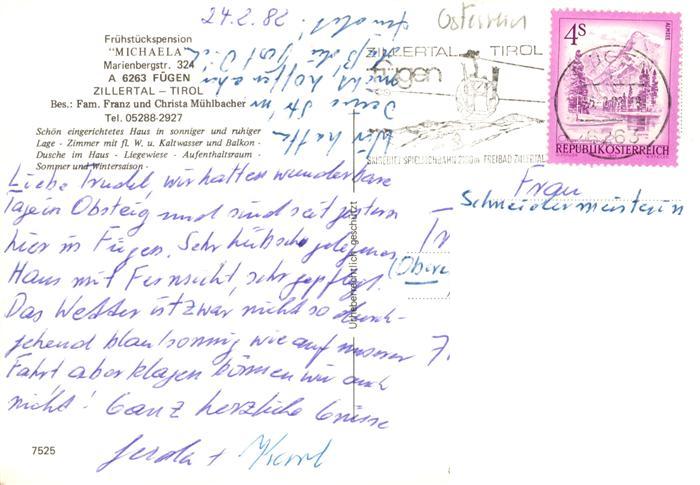 24.2.82
Österreich
Frühstückspension
"MICHAELA"
Marienbergstr. 324
A 6263 FÜGEN
ZILLERTAL – TIROL
Bes.: Fam. Franz und Christa Mühlbacher
Tel. 05288-2927
Schön eingerichtetes Haus in sonniger und ruhiger
Lage - Zimmer mit fl. W. u. Kaltwasser und Balkon -
Dusche im Haus - Liegewiese - Aufenthaltsraum -
Sommer und Wintersaison -
ZILLERTAL TIROL
fügen
SKIGEBIET SPIELJOCHBAHN 2100 m FREIBAD ZILLERTAL
4S
ALMSEE
REPUBLIK ÖSTERREICH
Liebe Trudel, wir hatten wunderbare
Tage in Obsteig und sind seit gestern
hier in Fügen. Sehr hübsch gelegenes
Haus mit Fernsicht, sehr gepflegt.
Das Wetter ist zwar nicht so durch-
gehend blau/sonnig wie auf unserer 7.
Fahrt aber klagen können wir auch
nicht! Ganz herzliche Grüsse
Gerda + Karl
Frau
Schneidermeisterin
(Obere
Urheberrechtlich geschützt
7525